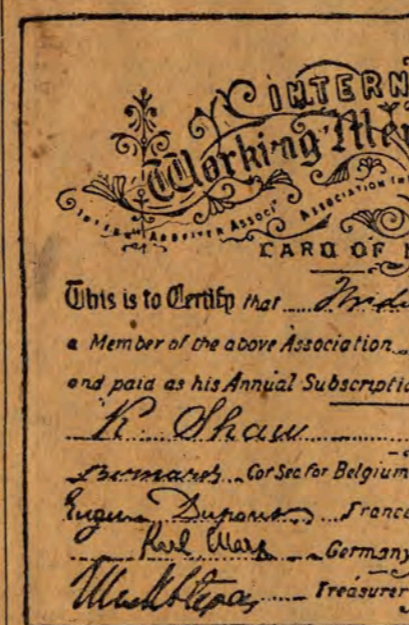 INTERN
Working Me
INTERN ARBEITER ASSOCI ASSOCIATION INT
CARD OF M
This is to Certify that
a Member of the above Association
and paid as his Annual Subscripti
R. Shaw
Bernard Cor Sec for Belgium
Eugene Dupont France
Karl Marx Germany
Treasurer